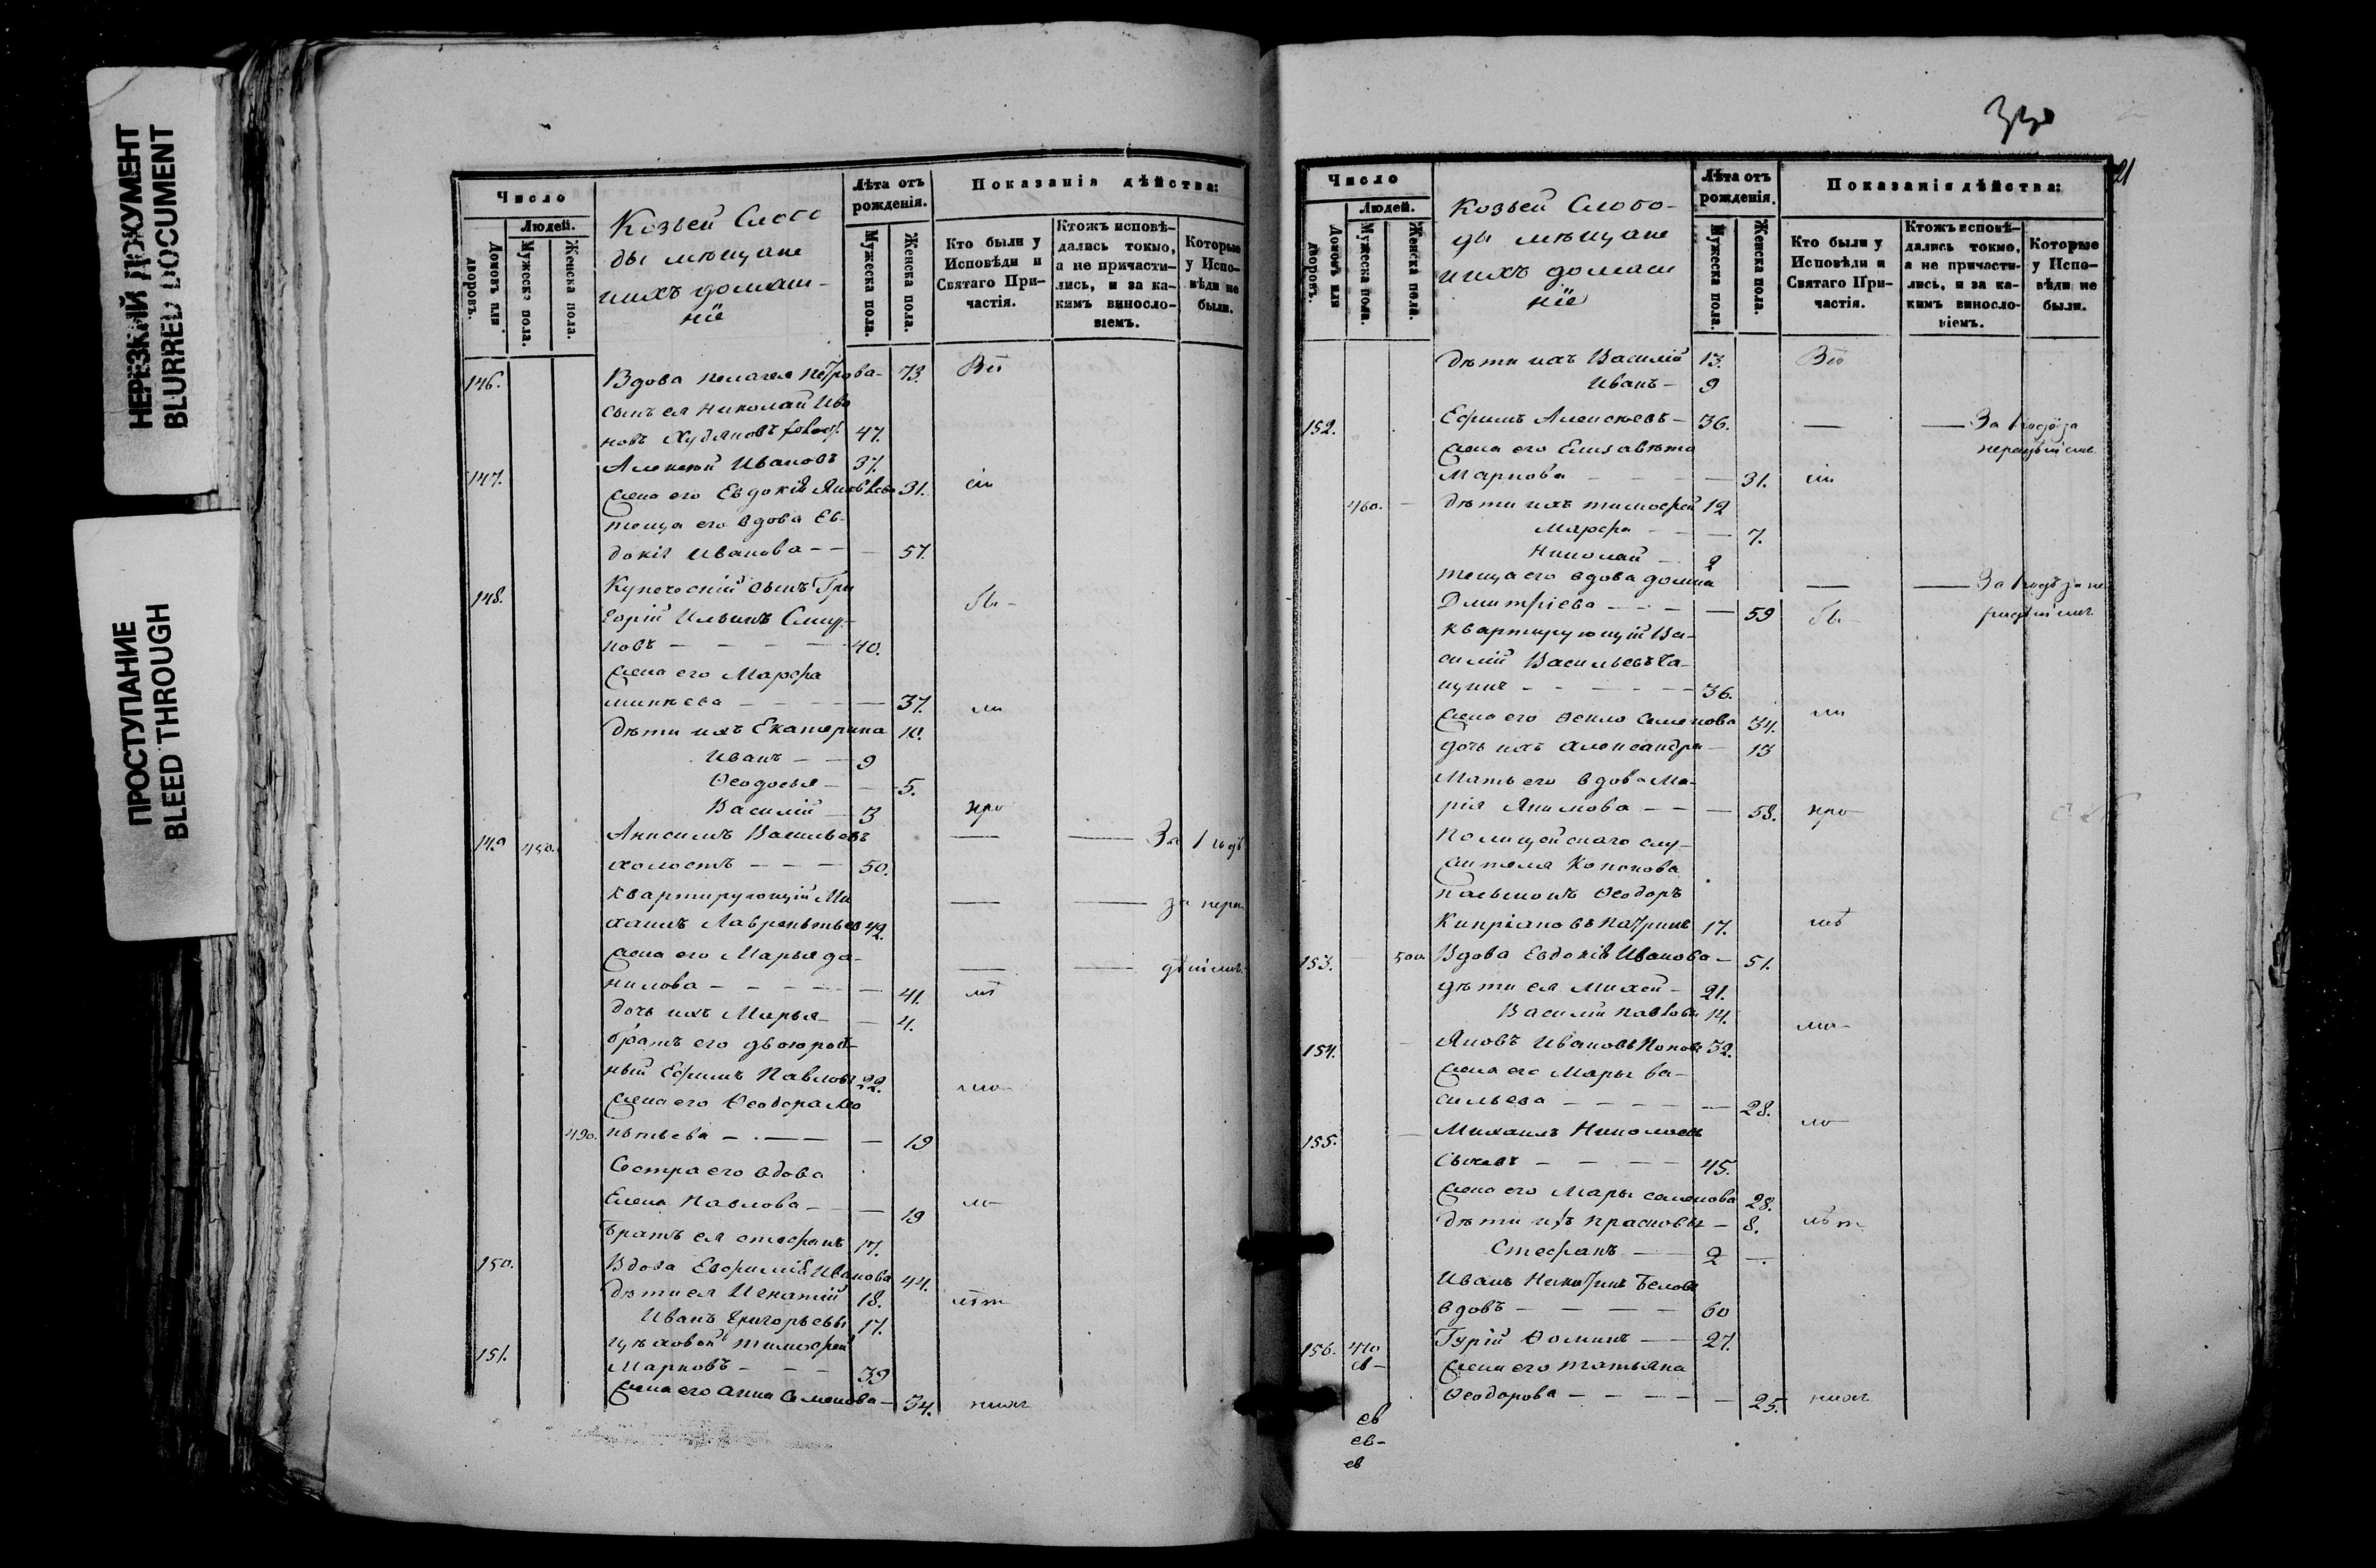 НЕРЕЗКИЙ ДОКУМЕНТ
BLURRED DOCUMENT
ПРОСТУПАНИЕ
BLEED THROUGH
Число
Людей.
Домовъ или дворовъ.
Мужеска пола.
Женска пола.
Козьей Слобо
ды мѣщане
ихъ домаш-
ніе
Лѣта отъ рожденія.
Мужеска пола.
Женска пола.
Показанія дѣйства:
Кто были у Исповѣди и Святаго Причастія.
Ктожъ исповѣ-
дались токмо,
а не причасти-
лись, и за ка-
кимъ виносло-
віемъ.
Которые
у Испо-
вѣди не
были.
146. Вдова Пелагея Петрова- 73.
сынъ ея Николай Ива
новъ 47.
147. Алексей Ивановъ 37.
жена его Евдокія Яковлева 31.
теща его вдова Ев-
докія Иванова - - - 57.
148. Купеческій сынъ Гри
горій Ильинъ
новъ - - - - 40.
жена его Марфа
37.
дѣти ихъ Екатерина 10.
Иванъ - - 9
Ѳеодосья - - 5.
Василій - 3
149 450. Анисимъ Васильевъ За 1 годъ
холостъ - - - 50.
квартирующій Ми
хаилъ Лаврентьев 42. за нера
жена его Марья Да-
нилова - - - - - 41.
дочь ихъ Марья - - 4.
братъ его двоюрод-
ный Ефимъ Павловъ 22.
жена его Ѳеодора
490. - - - - 19
Сестра его вдова
Елена Павлова - - - 19
Братъ ея Стефанъ 17.
150. Вдова Евфимія Иванова 44.
дѣти ея Игнатій 18.
Иванъ Григорьевы 17.
151. цѣховой Тимофей
Марковъ - - - 39
жена его Анна Семенова - 34.
21
Число
Людей.
Домовъ или дворовъ.
Мужеска пола.
Женска пола.
Козьей Слобо-
ды мѣщане
ихъ домаш
ніе
Лѣта отъ рожденія.
Мужеска пола.
Женска пола.
Показанія дѣйства:
Кто были у Исповѣди и Святаго Причастія.
Ктожъ исповѣ-
дались токмо,
а не причасти-
лись, и за ка-
кимъ виносло-
віемъ.
Которые
у Испо-
вѣди не
были.
дѣти ихъ Василій 13.
Иванъ - 9
152. Ефимъ Алексѣевъ - 36. За 1 годъ за
жена его Елизавѣта
Маркова - - - - 31.
460. дѣти ихъ Тимофей 12
Марфа - - - 7.
Николай - 2
теща его вдова Домна За 1 годъ за не
Дмитріева - - - - 59
квартирующій Ва-
силій Васильевъ
- - - - 36.
жена его Ѳекла Семенова 34.
дочь ихъ Александра - 13
Мать его вдова Ма-
рія Якимова - - - 58.
Полицейскаго слу-
жителя
Ѳеодоръ
Кипріановъ 17.
153. 500. Вдова Евдокія Иванова - 51.
дѣти ея Михей - 21.
Василій Павловы 14.
154. Яковъ Ивановъ Поповъ 32.
жена его Марья Ва-
сильева - - - - - 28.
155. Михаилъ Николаевъ
- - - - 45.
жена его Марья Семенова 28.
дѣти ихъ Прасковья - 8.
Стефанъ - 2 -
Иванъ Никитинъ Беловъ
вдовъ - - - - 60
156. 470 Гурій Ѳоминъ - 27.
жена его Татьяна
Ѳеодорова - - - - - 25.